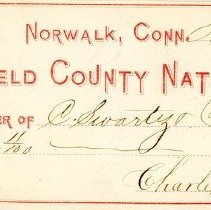 NORWALK, CONN.
IELD COUNTY NAT
ER OF C. Swartz
11/100
Charle